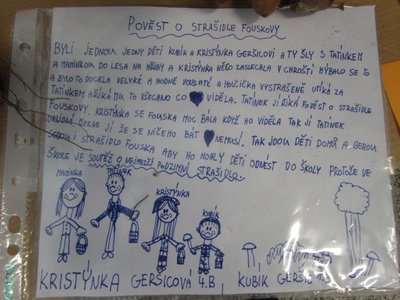 POVĚST O STRAŠIDLE FOUSKOVY
BYLI JEDNOU JEDNY DĚTI KUBÍK A KRISTÝNKA GERSICOVI A TY ŠLY S TATÍNKEM
A MAMINKOU DO LESA NA HŘIBY A KRISTÝNKA NĚCO ZASLECHLA V CHROŠTÍ HÝBALO SE TO
A BYLO TO DOCELA VELYKÉ A HODNĚ VOUSATÉ A HOLČIČKA VYSTRAŠENĚ UTÍKÁ ZA
TATÍNKEM A ŘÍKÁ MU TO VŠECHNO CO VIDĚLA. TATÍNEK JÍ ŘÍKÁ POVĚST O STRAŠIDLE
FOUSKOVY. KRISTÝNKA SE FOUSKA MOC BÁLA KDYŽ HO VIDĚLA TAK JÍ TATÍNEK
JÍ ŽE SE NIČEHO BÁT NEMUSÍ. TAK JDOU DĚTI DOMŮ A BEROU
SEBOU I STRAŠIDLO FOUSKA ABY HO MOHLY DĚTI ODNÉST DO ŠKOLY PROTOŽE VE
ŠKOLE JE SOUTĚŽ O NEJHEZČÍ PODZIMNÍ STRAŠIDLO.
MAMINKA
TATÍNEK
KRISTÝNKA
KUBÍK
KRISTÝNKA GERSICOVÁ 4.B, KUBÍK